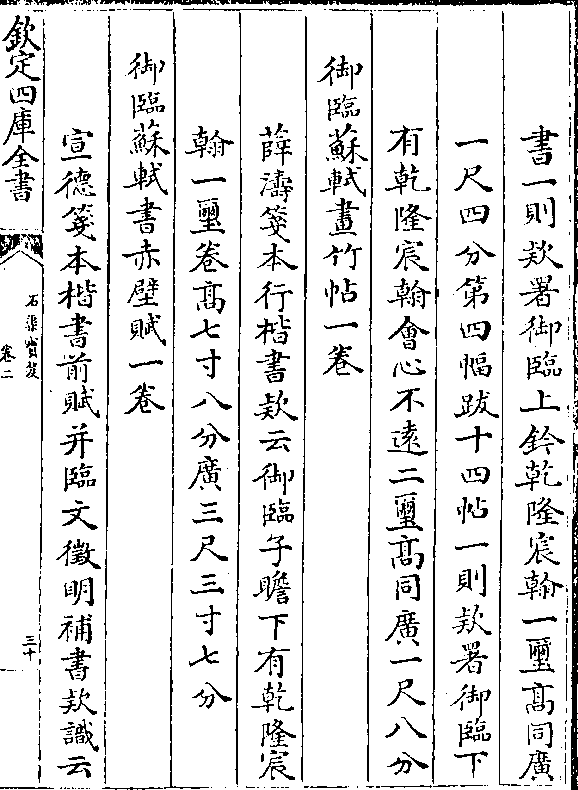 書一則欵署御臨上鈐乾隆宸翰一璽髙同廣
一尺四分第四幅跋十四帖一則欵署御臨下
有乾隆宸翰會心不逺二璽髙同廣一尺八分
御臨蘇軾畫竹帖一卷
薛濤箋本行楷書欵云御臨子瞻下有乾隆宸
翰一璽卷髙七寸八分廣三尺三寸七分
御臨蘇軾書赤壁賦一卷
宣德箋本楷書前賦并臨文徵明補書欵識云
欽定四庫全書
石渠寳笈
卷二
三十